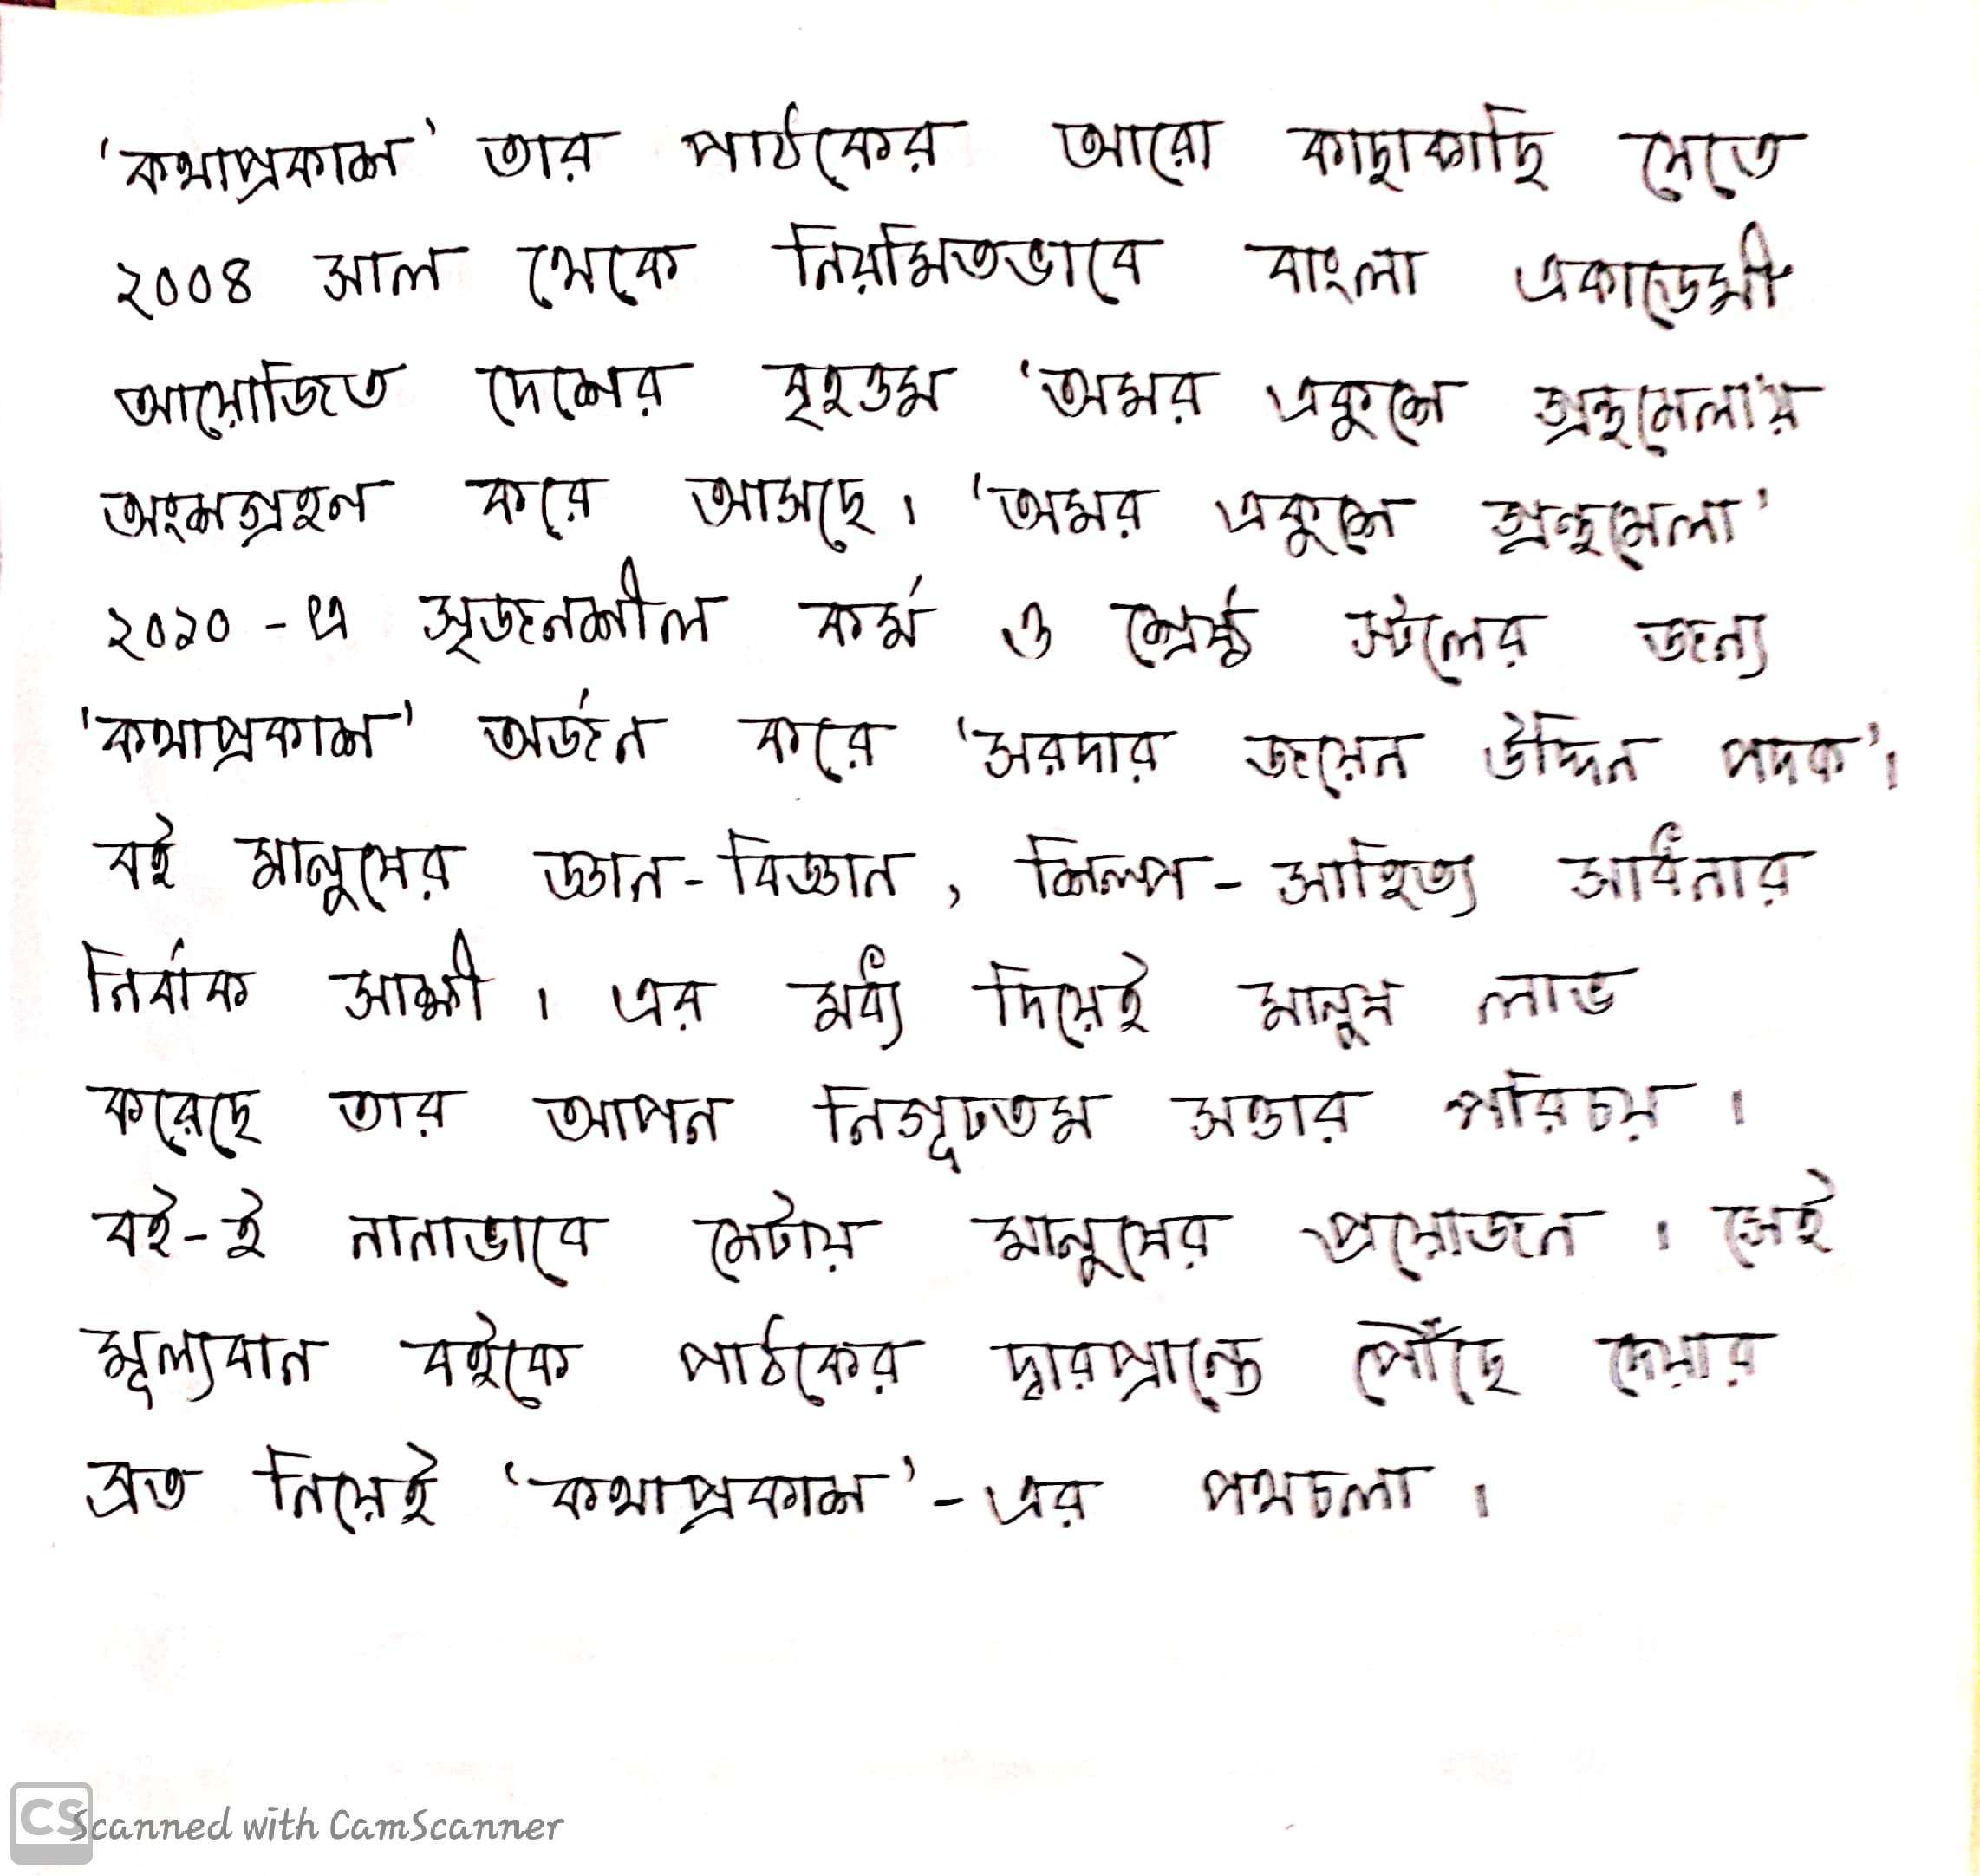 'কথাপ্রকাশ' তার পাঠকের আরো কাছাকাছি যেতে
২০০৪ সাল থেকে নিয়মিতভাবে বাংলা একাডেমী
আয়োজিত দেশের বৃহত্তম 'অমর একুশে গ্রন্থমেলা'য়
অংশগ্রহন করে আসছে। 'অমর একুশে গ্রন্থমেলা'
২০১০ - এ সৃজনশীল কর্ম ও শ্রেষ্ঠ স্টলের জন্য
'কথাপ্রকাশ' অর্জন করে 'সরদার জয়েন উদ্দিন পদক'।
বই মানুষের জ্ঞান-বিজ্ঞান, শিল্প-সাহিত্য সাধনার
নির্বাক সাক্ষী। এর মধ্য দিয়েই মানুষ লাভ
করেছে তার আপন নিগূঢ়তম সত্তার পরিচয়।
বই-ই নানাভাবে মেটায় মানুষের প্রয়োজন। সেই
মূল্যবান বইকে পাঠকের দ্বারপ্রান্তে পৌঁছে দেয়ার
ব্রত নিয়েই 'কথাপ্রকাশ'-এর পথচলা।
CS Scanned with CamScanner